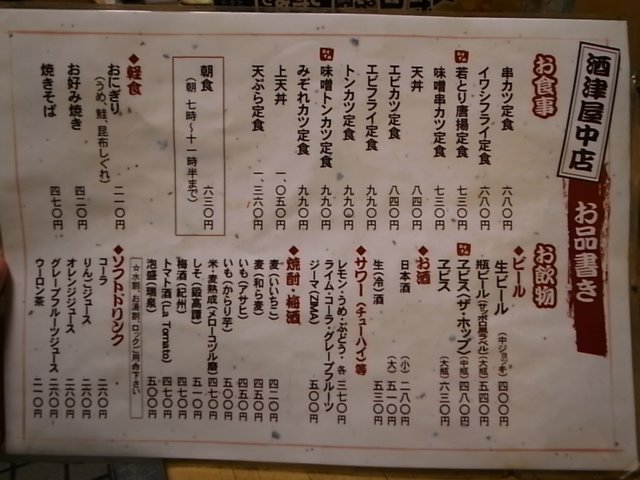 酒津屋中店
お品書き
お食事
串カツ定食 六八〇円
イワシフライ定食 六八〇円
若とり唐揚定食 七三〇円
味噌串カツ定食 七三〇円
天丼 八四〇円
エビカツ定食 八四〇円
エビフライ定食 九九〇円
トンカツ定食 九九〇円
味噌トンカツ定食 九九〇円
みぞれカツ定食 九九〇円
上天丼 一、〇五〇円
天ぷら定食 一、三六〇円
朝食
(朝 七時〜十一時半まで) 六三〇円
◆軽食
おにぎり 二一〇円
(うめ、鮭、昆布しぐれ)
お好み焼き 四二〇円
焼きそば 四七〇円
お飲物
◆ビール
生ビール (中ジョッキ) 四〇〇円
瓶ビール(サッポロ黒ラベル) (大瓶) 五四〇円
ヱビス〈ザ・ホップ〉 (中瓶) 四八〇円
ヱビス (大瓶) 六三〇円
◆お酒
日本酒 (小) 二八〇円
(大) 五一〇円
生(冷)酒 五三〇円
◆サワー(チューハイ)等
レモン・うめ・ぶどう・各 三七〇円
ライム・コーラ・グレープフルーツ
ジーマ(ZIMA) 五〇〇円
◆焼酎・梅酒
麦(いいちこ) 四二〇円
麦(和ら麦) 四五〇円
いも(アサヒ) 四五〇円
いも(からり芋) 五〇〇円
米・麦熟成(メローコヅル磨) 四七〇円
しそ(鍛高譚) 五一〇円
梅酒(紀州) 四七〇円
トマト酒(La Tomato) 四七〇円
泡盛(瑞泉) 五〇〇円
☆水割、お湯割、ロック)ご用命下さい
◆ソフトドリンク
コーラ 二六〇円
りんごジュース 二六〇円
オレンジジュース 二六〇円
グレープフルーツジュース 二六〇円
ウーロン茶 二一〇円